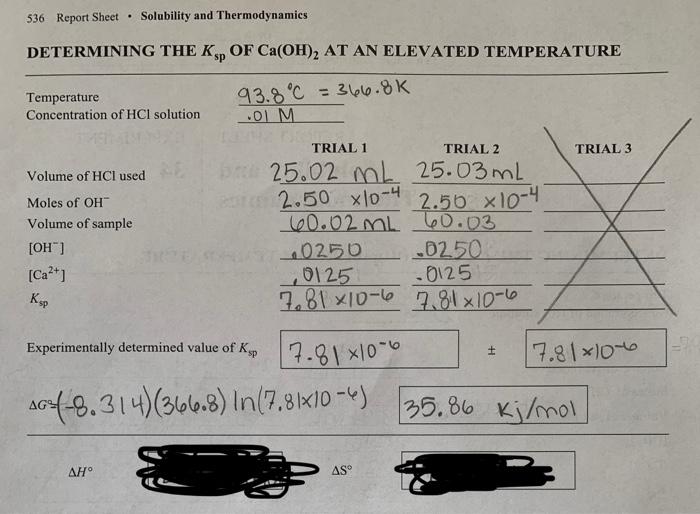 536 Report Sheet • Solubility and Thermodynamics
DETERMINING THE Ksp OF Ca(OH)₂ AT AN ELEVATED TEMPERATURE
Temperature 93.8°C = 366.8K
Concentration of HCl solution .01 M
TRIAL 1 TRIAL 2 TRIAL 3
Volume of HCl used 25.02 mL 25.03 mL
Moles of OH⁻ 2.50 x10⁻⁴ 2.50 x10⁻⁴
Volume of sample 60.02 mL 60.03
[OH⁻] .0250 .0250
[Ca²⁺] .0125 .0125
Ksp 7.81 x10⁻⁶ 7.81 x10⁻⁶
Experimentally determined value of Ksp 7.81 x10⁻⁶ ± 7.81 x10⁻⁶
ΔG°= (-8.314)(366.8) ln(7.81x10⁻⁶) 35.86 kj/mol
ΔH° ΔS°